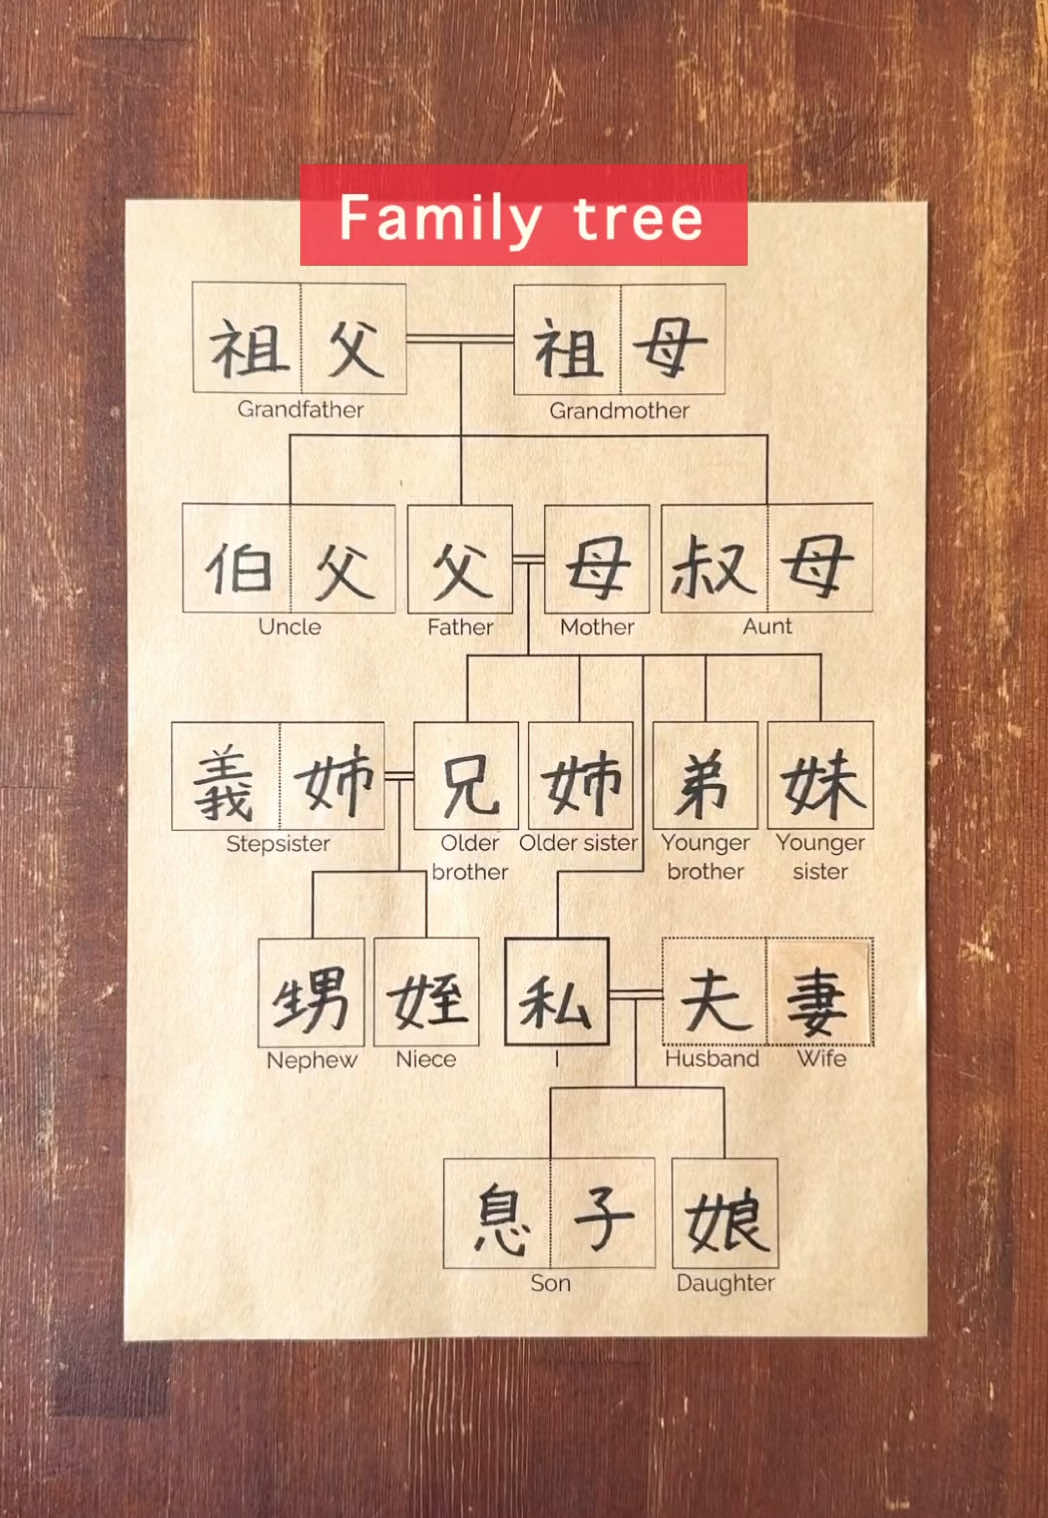 Family tree
祖父 祖母
Grandfather Grandmother
伯父 父 母 叔母
Uncle Father Mother Aunt
義姉 兄 姉 弟 妹
Stepsister Older brother Older sister Younger brother Younger sister
甥 姪 私 夫 妻
Nephew Niece I Husband Wife
息子 娘
Son Daughter